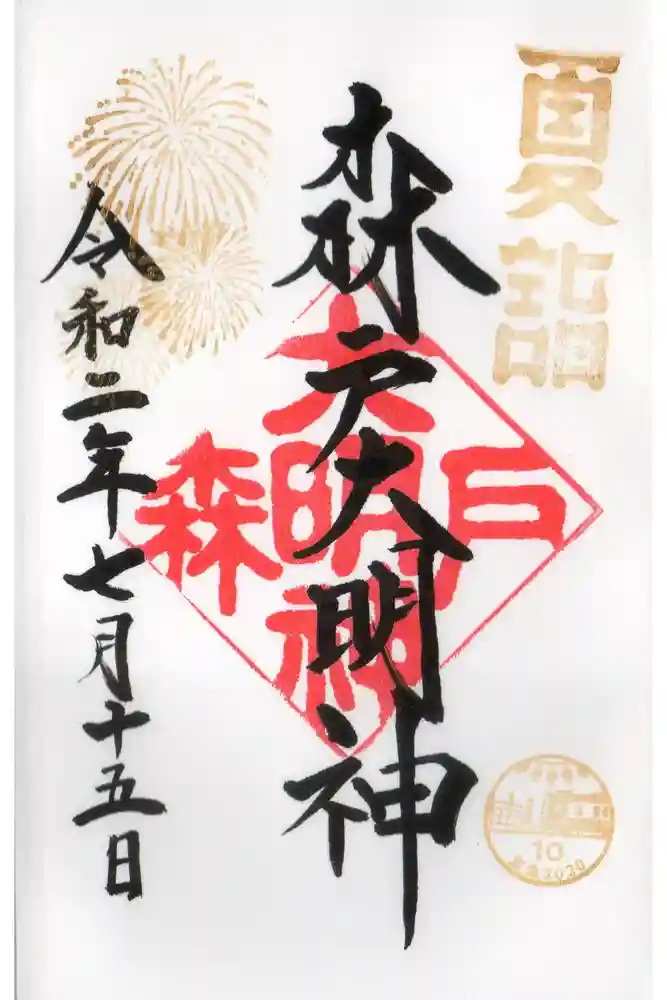 夏詣
森戸大明神
森戸大明神
令和二年七月十五日
10
2020